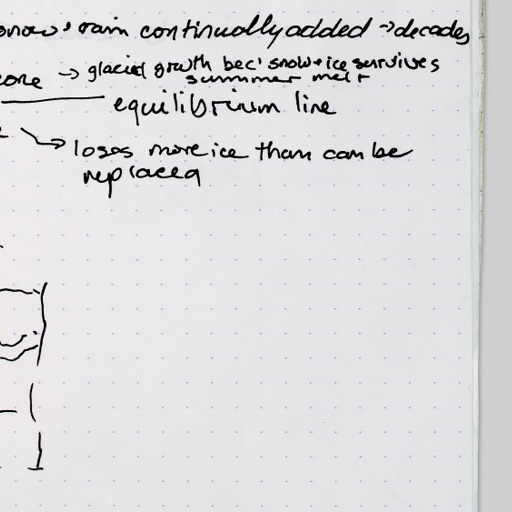 snow + rain continually added → decades
zone → glacial growth bec' snow + ice survives
summer melt
equilibrium line
→ loses more ice than can be
replaced